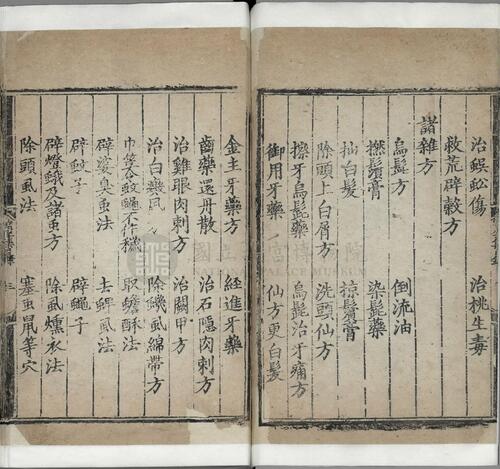 治蜈蚣傷 治桃生毒
救荒辟穀方
諸雜方
烏髭方 倒流油
撚鬚膏 染髭藥
拈白髮 掠鬢膏
除頭上白屑方 洗頭仙方
擦牙烏髭藥 烏髭治牙痛方
御用牙藥 仙方更白髮
金主牙藥方 經進牙藥
齒藥還丹散 治石隱肉刺方
治雞眼肉刺方 治闕甲方
治白癜風 除蟣虱綿帶方
巾篋令蚊蠅不作穢 取蟾酥法
辟諸臭虫法 去蜱虱法
辟蚊子 辟蠅子
辟燈蛾及諸虫方 除虱燻衣法
除頭虱法 塞虫鼠等穴
國立故宮博物院